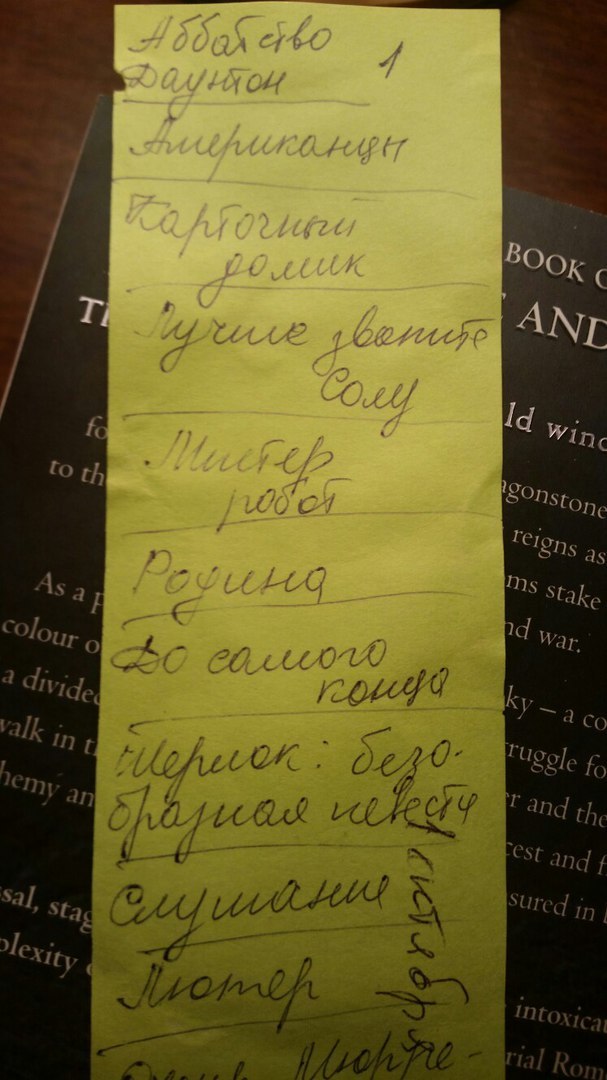 Аббатство 1
Даунтон
Американцы
Карточный
домик
Лучше звоните
Солу
Мистер
робот
Родина
До самого
конца
Шерлок: безо-
бразная невеста
Слушание
Лютер
Мюррее-
BOOK O
AND
ld wind
agonstone
reigns as
ms stake
nd war.
ky – a co
truggle fo
er and the
cest and f
sured in
intoxicat
rial Rom
fo
to th
As a p
colour o
a divided
walk in t
hemy an
sal, stag
plexity